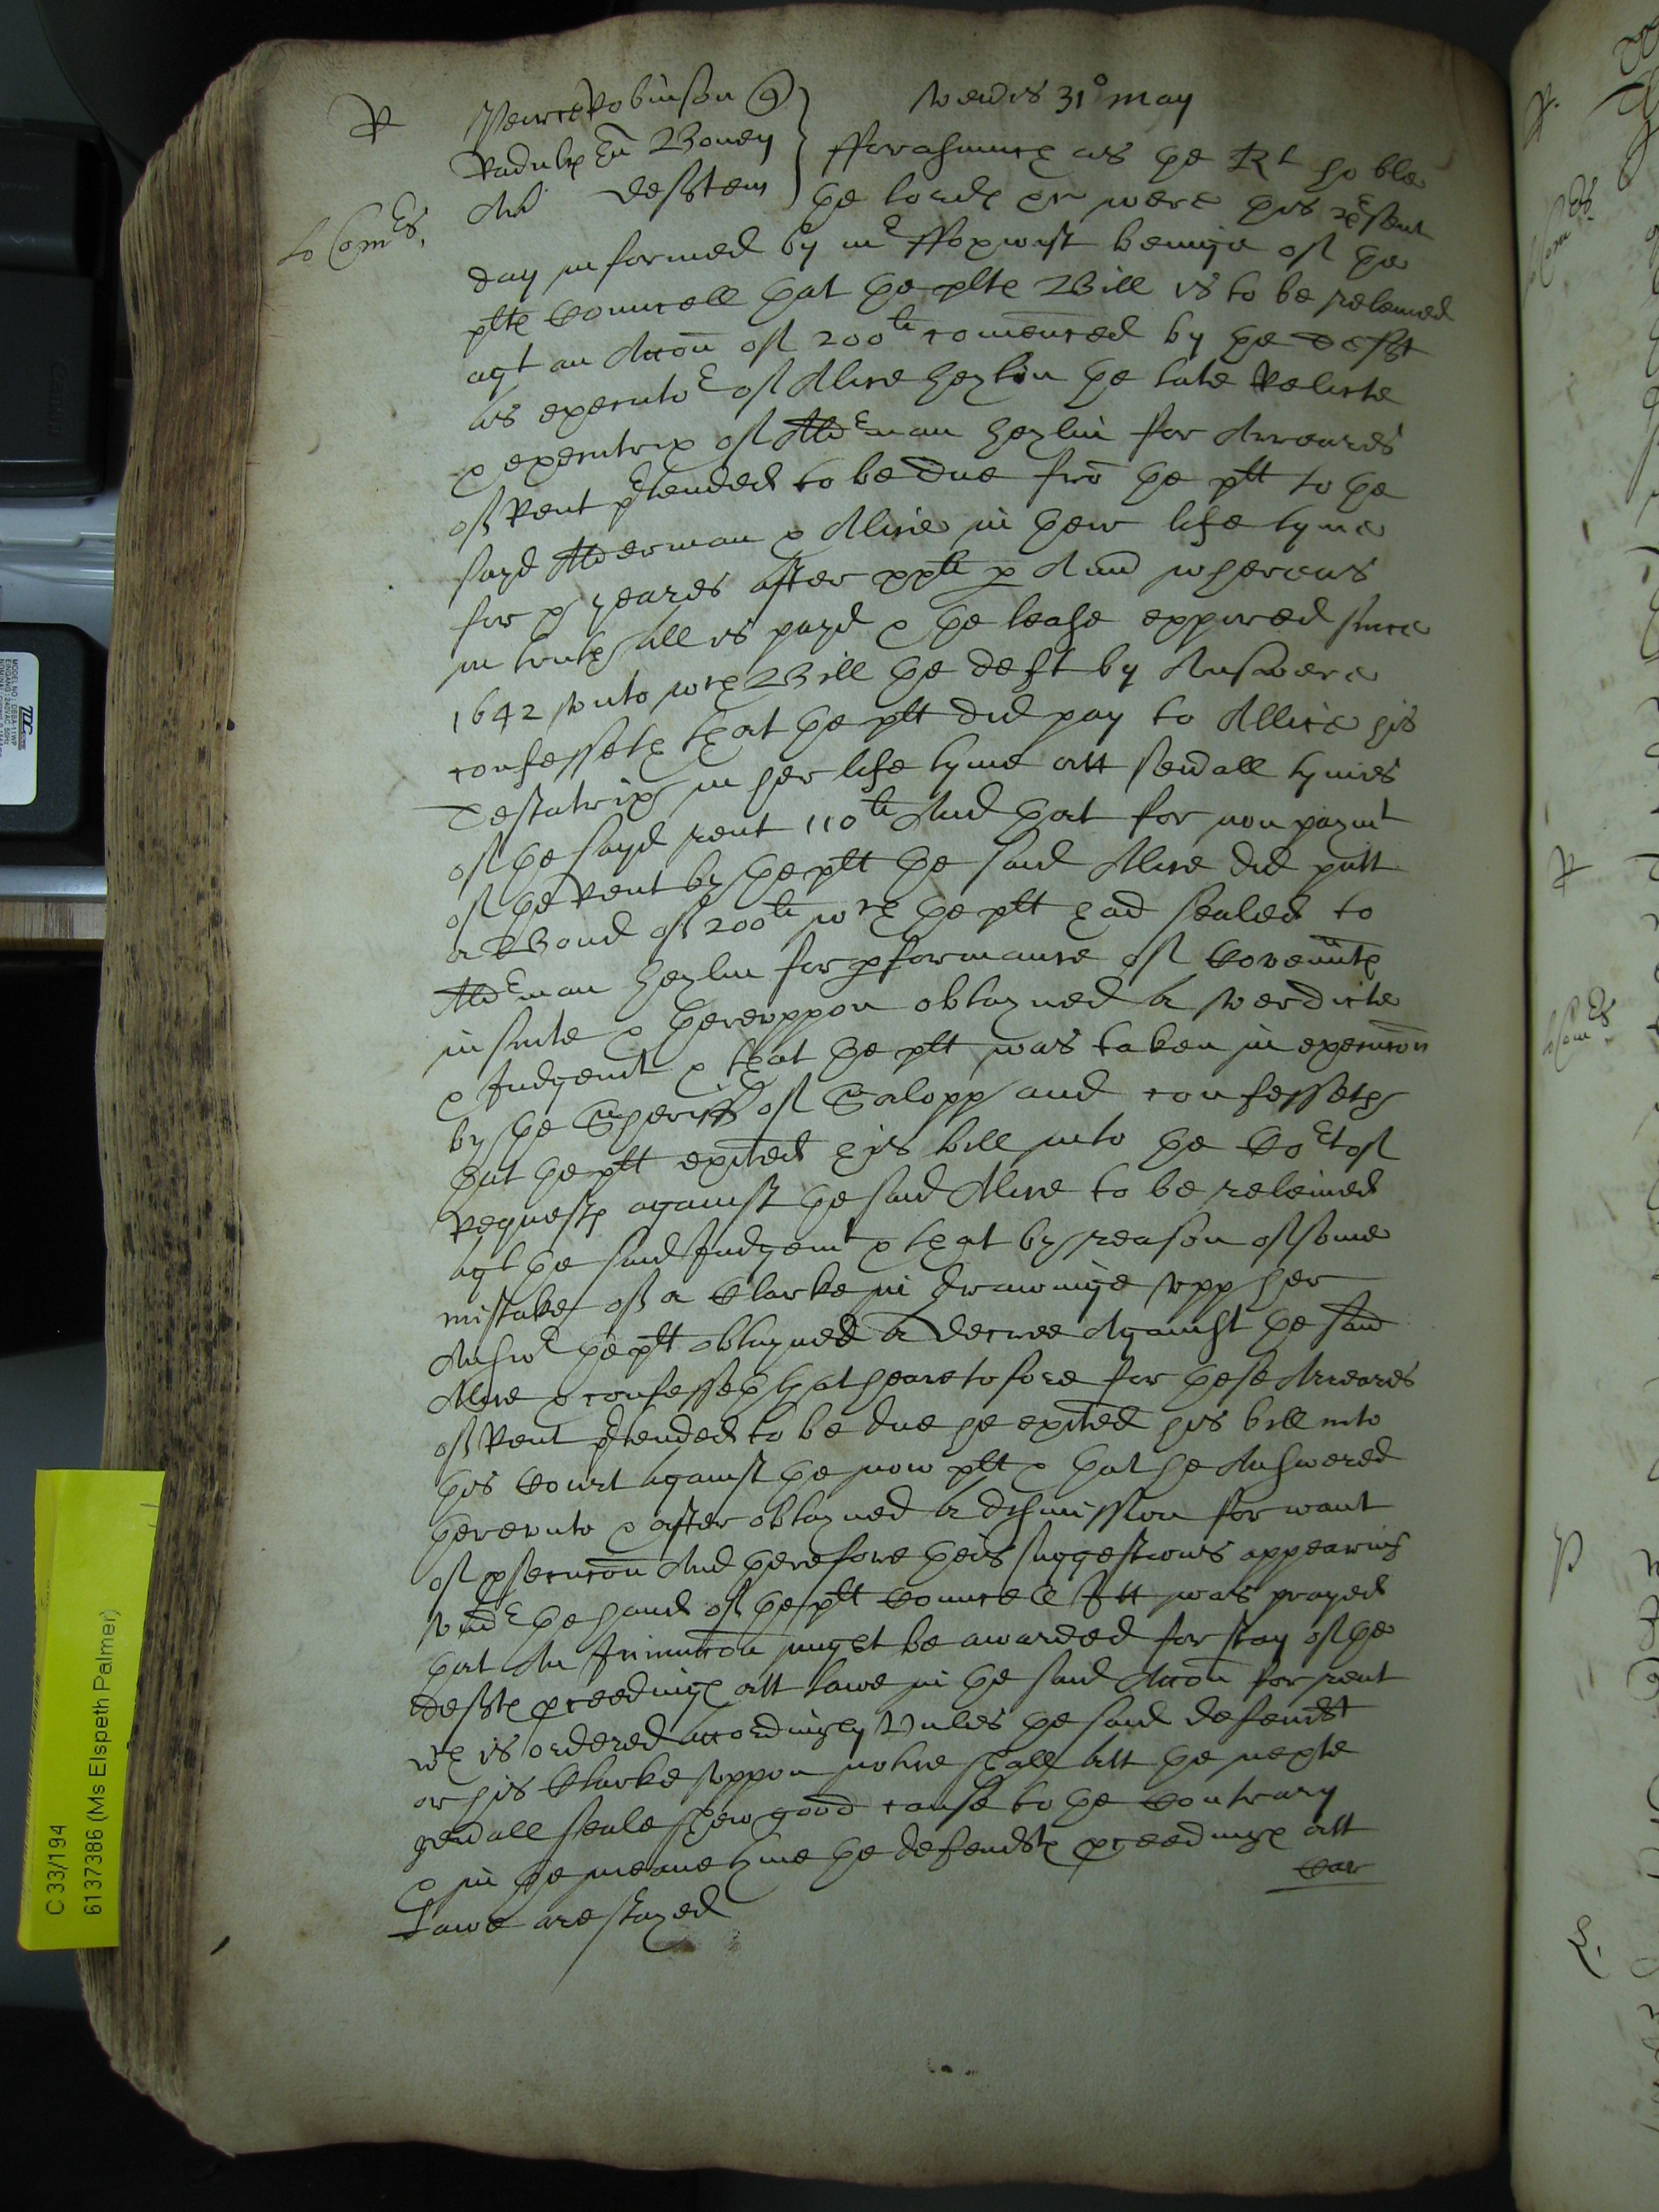 R
Peirce Robinson q
Radulph Bovey
Ar̃ defftem
lo Comrs
Ven̄is 31° May
fforasmuch as the Rt ho:ble
the lords Com̃rs were this p̃sent
day informed by mr ffoxwist beinge of the
pltẽ Councell that the pltẽ Bill is to be releived
agt an Accõn of 200li com̃enced by the defft
as executor of Alice Heylin the late Relicte
& executrix of Aldrman Heylin for Arreares
of Rent p̃tended to be due frõ the plt to the
sayd Alderman & Alice in their life tyme
for yeares after p Ann̄ whereas
in truth all is payd & the lease expired since
1642 vnto wch Bill the deft by Answere
confesseth that the plt did pay to Allice his
Testatrix in her life tyme att sevall tymes
of the sayd rent 110li And that for non paymt
of the Rent by the plt the said Alice did putt
a Bond of 200li wch the plt had sealed to
Aldrman Heylin for pformance of Covennts
in suite & therevppon obtayned a verdicte
& Judgemt & that the plt was taken in execucõn
by the Sheriff of Salopp and confesseth
that the plt exited his bill into the Cort of
Requests against the said Alice to be releived
agt the said Judgemt & that by reason of some
mistake of a Clarke in drawinge vpp her
Answr the plt obtayned a decree Against the said
Alice & confesseth that heretofore for these Arreares
of Rent p̃tended to be due he exited his bill into
this Court against the now plt & that he Answered
therevnto & after obtayned a dismission for want
of psecucõn And therefore theis suggestions appearing
vndr the hand of the plt Councell Itt was prayed
that An Iniunccõn might be awarded for stay of the
deffts pceedings att lawe in the said Accõn for rent
wch is ordered accordingly Vnles the said defendt
or his Clarke vppon notice shall att the nexte
gen̄all seale shew good cause to the Contrary
& in the meane tyme the defendts pceedings att
Lawe are stayed
C 33/194
6137386 (Ms Elspeth Palmer)
TDC